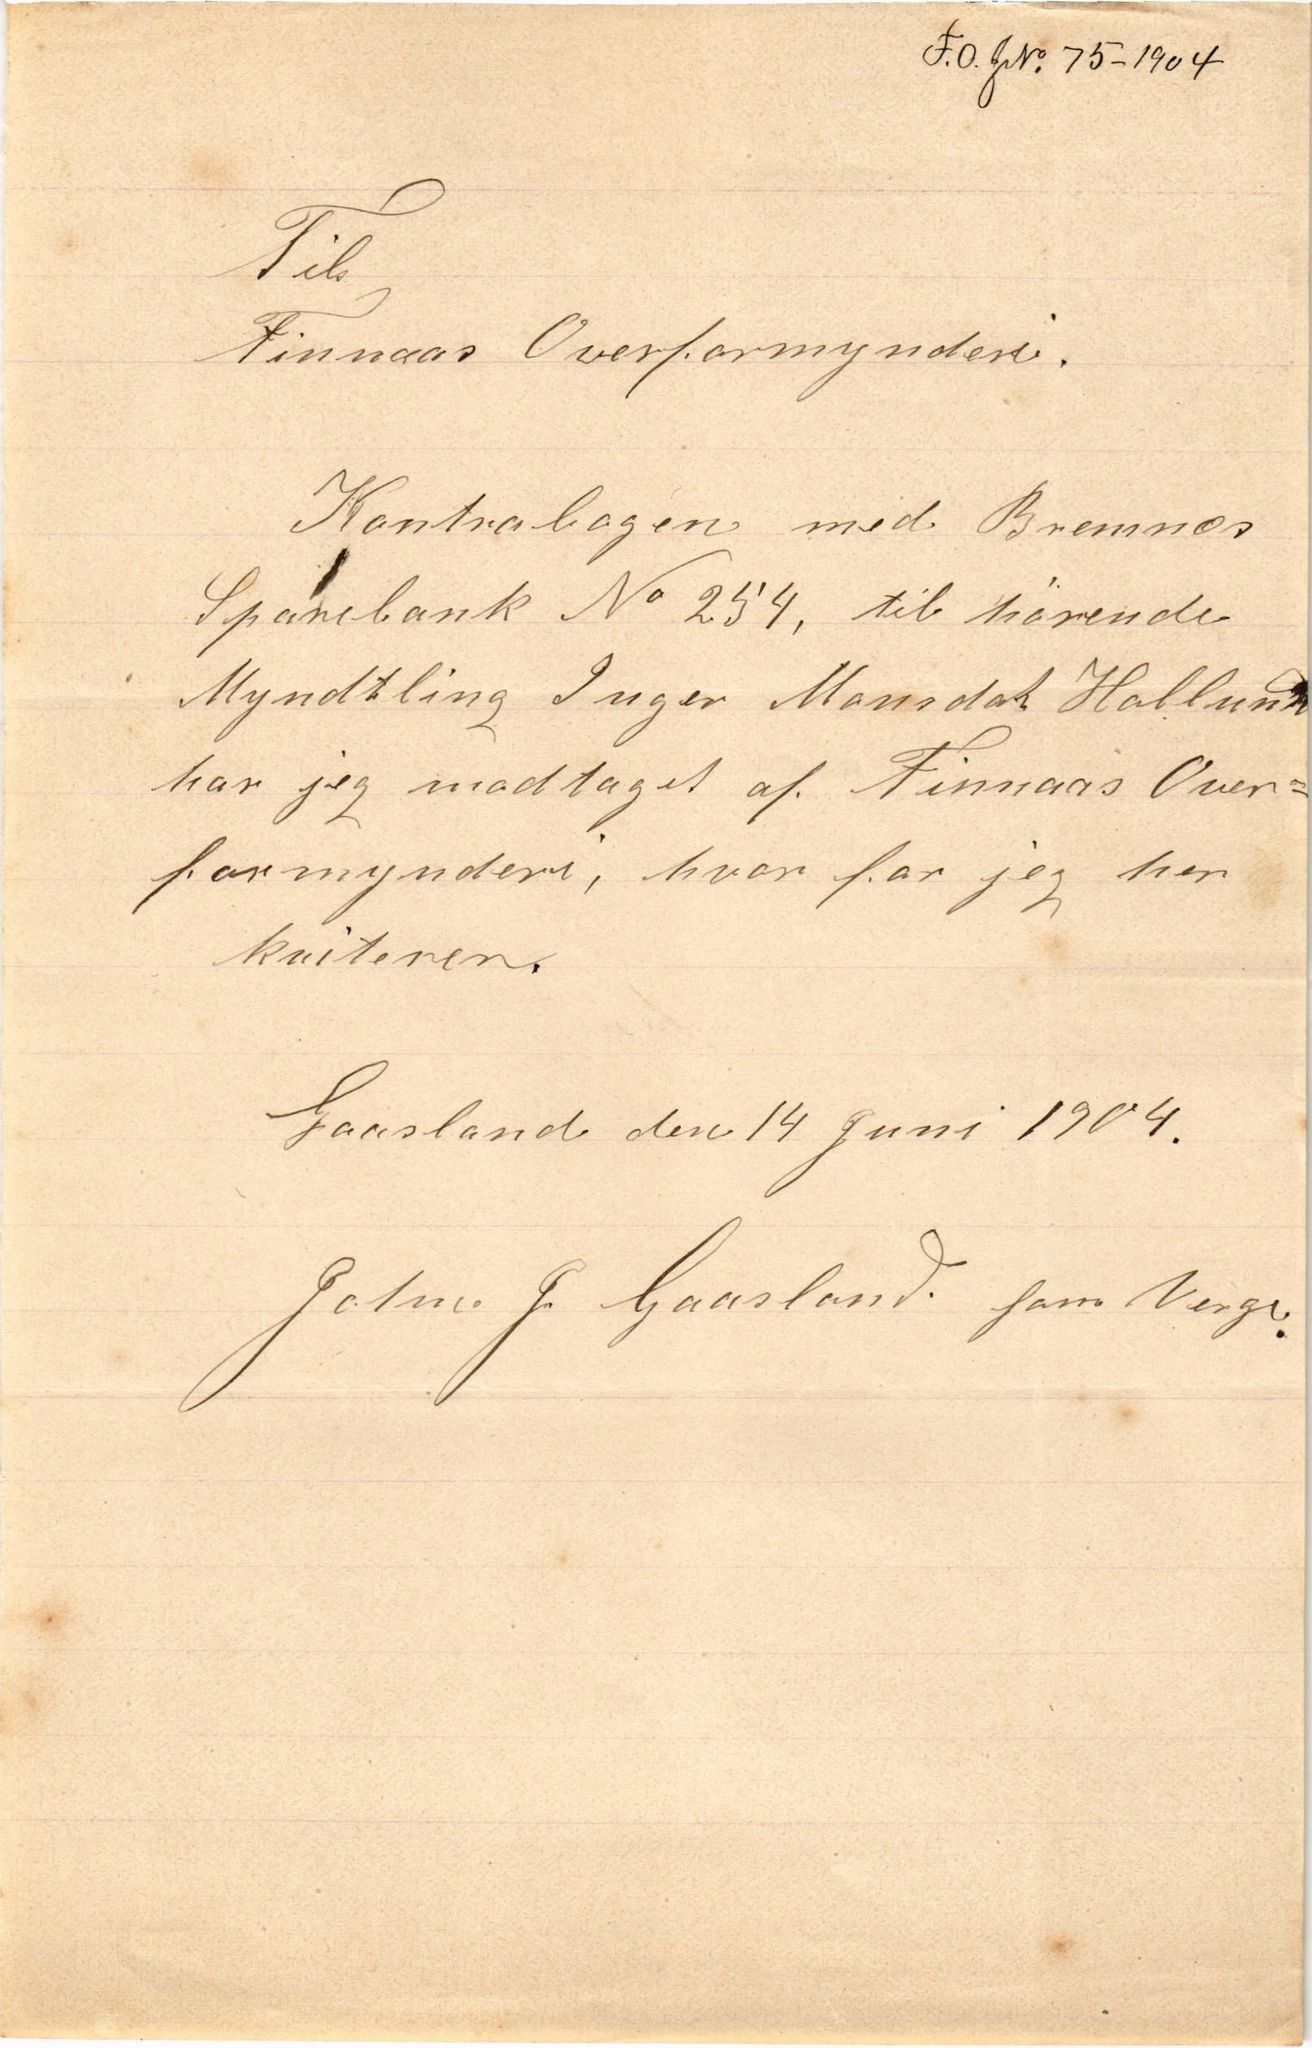 F.O. JNo. 75-1904
Til
Finnaas Overformynderi.
Kontrabogen med Bremnes
Sparebank No 254, til hörende
Myndtling Inger Monsdat Hollund
har jeg modtaget af Finnaas Over=
formynderi, hvor for jeg her
kviterer.
Gaasland den 14 Juni 1904.
J. Gaasland. som Verge.